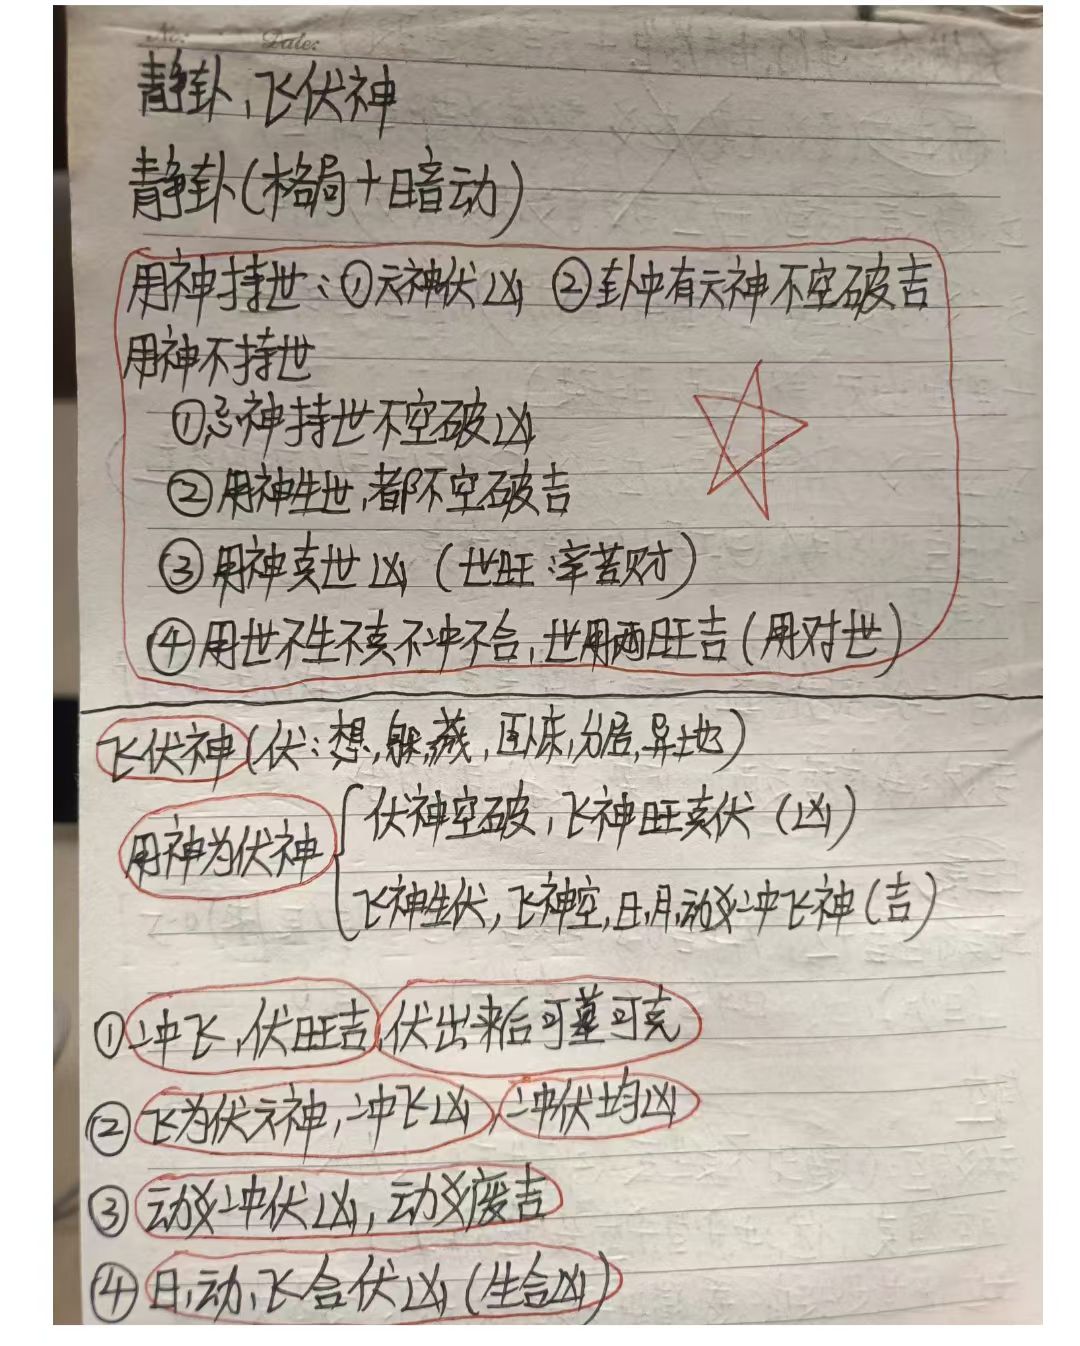 No: Date:
静卦、飞伏神
静卦(格局+暗动)
用神持世:①元神伏凶 ②卦中有元神不空破吉
用神不持世
①忌神持世不空破凶
②用神生世,都不空破吉
③用神克世凶(世旺:辛苦财)
④用世不生不克不冲不合,世用两旺吉(用对世)
飞伏神(伏:想,躲,藏,卧床,分居,异地)
用神为伏神
伏神空破,飞神旺克伏(凶)
飞神生伏,飞神空,日,月,动爻冲飞神(吉)
①冲飞,伏旺吉,伏出来后可墓可克
②飞为伏元神,冲飞凶,冲伏均凶
③动爻冲伏凶,动爻废吉
④日、动、飞合伏凶(生合凶)